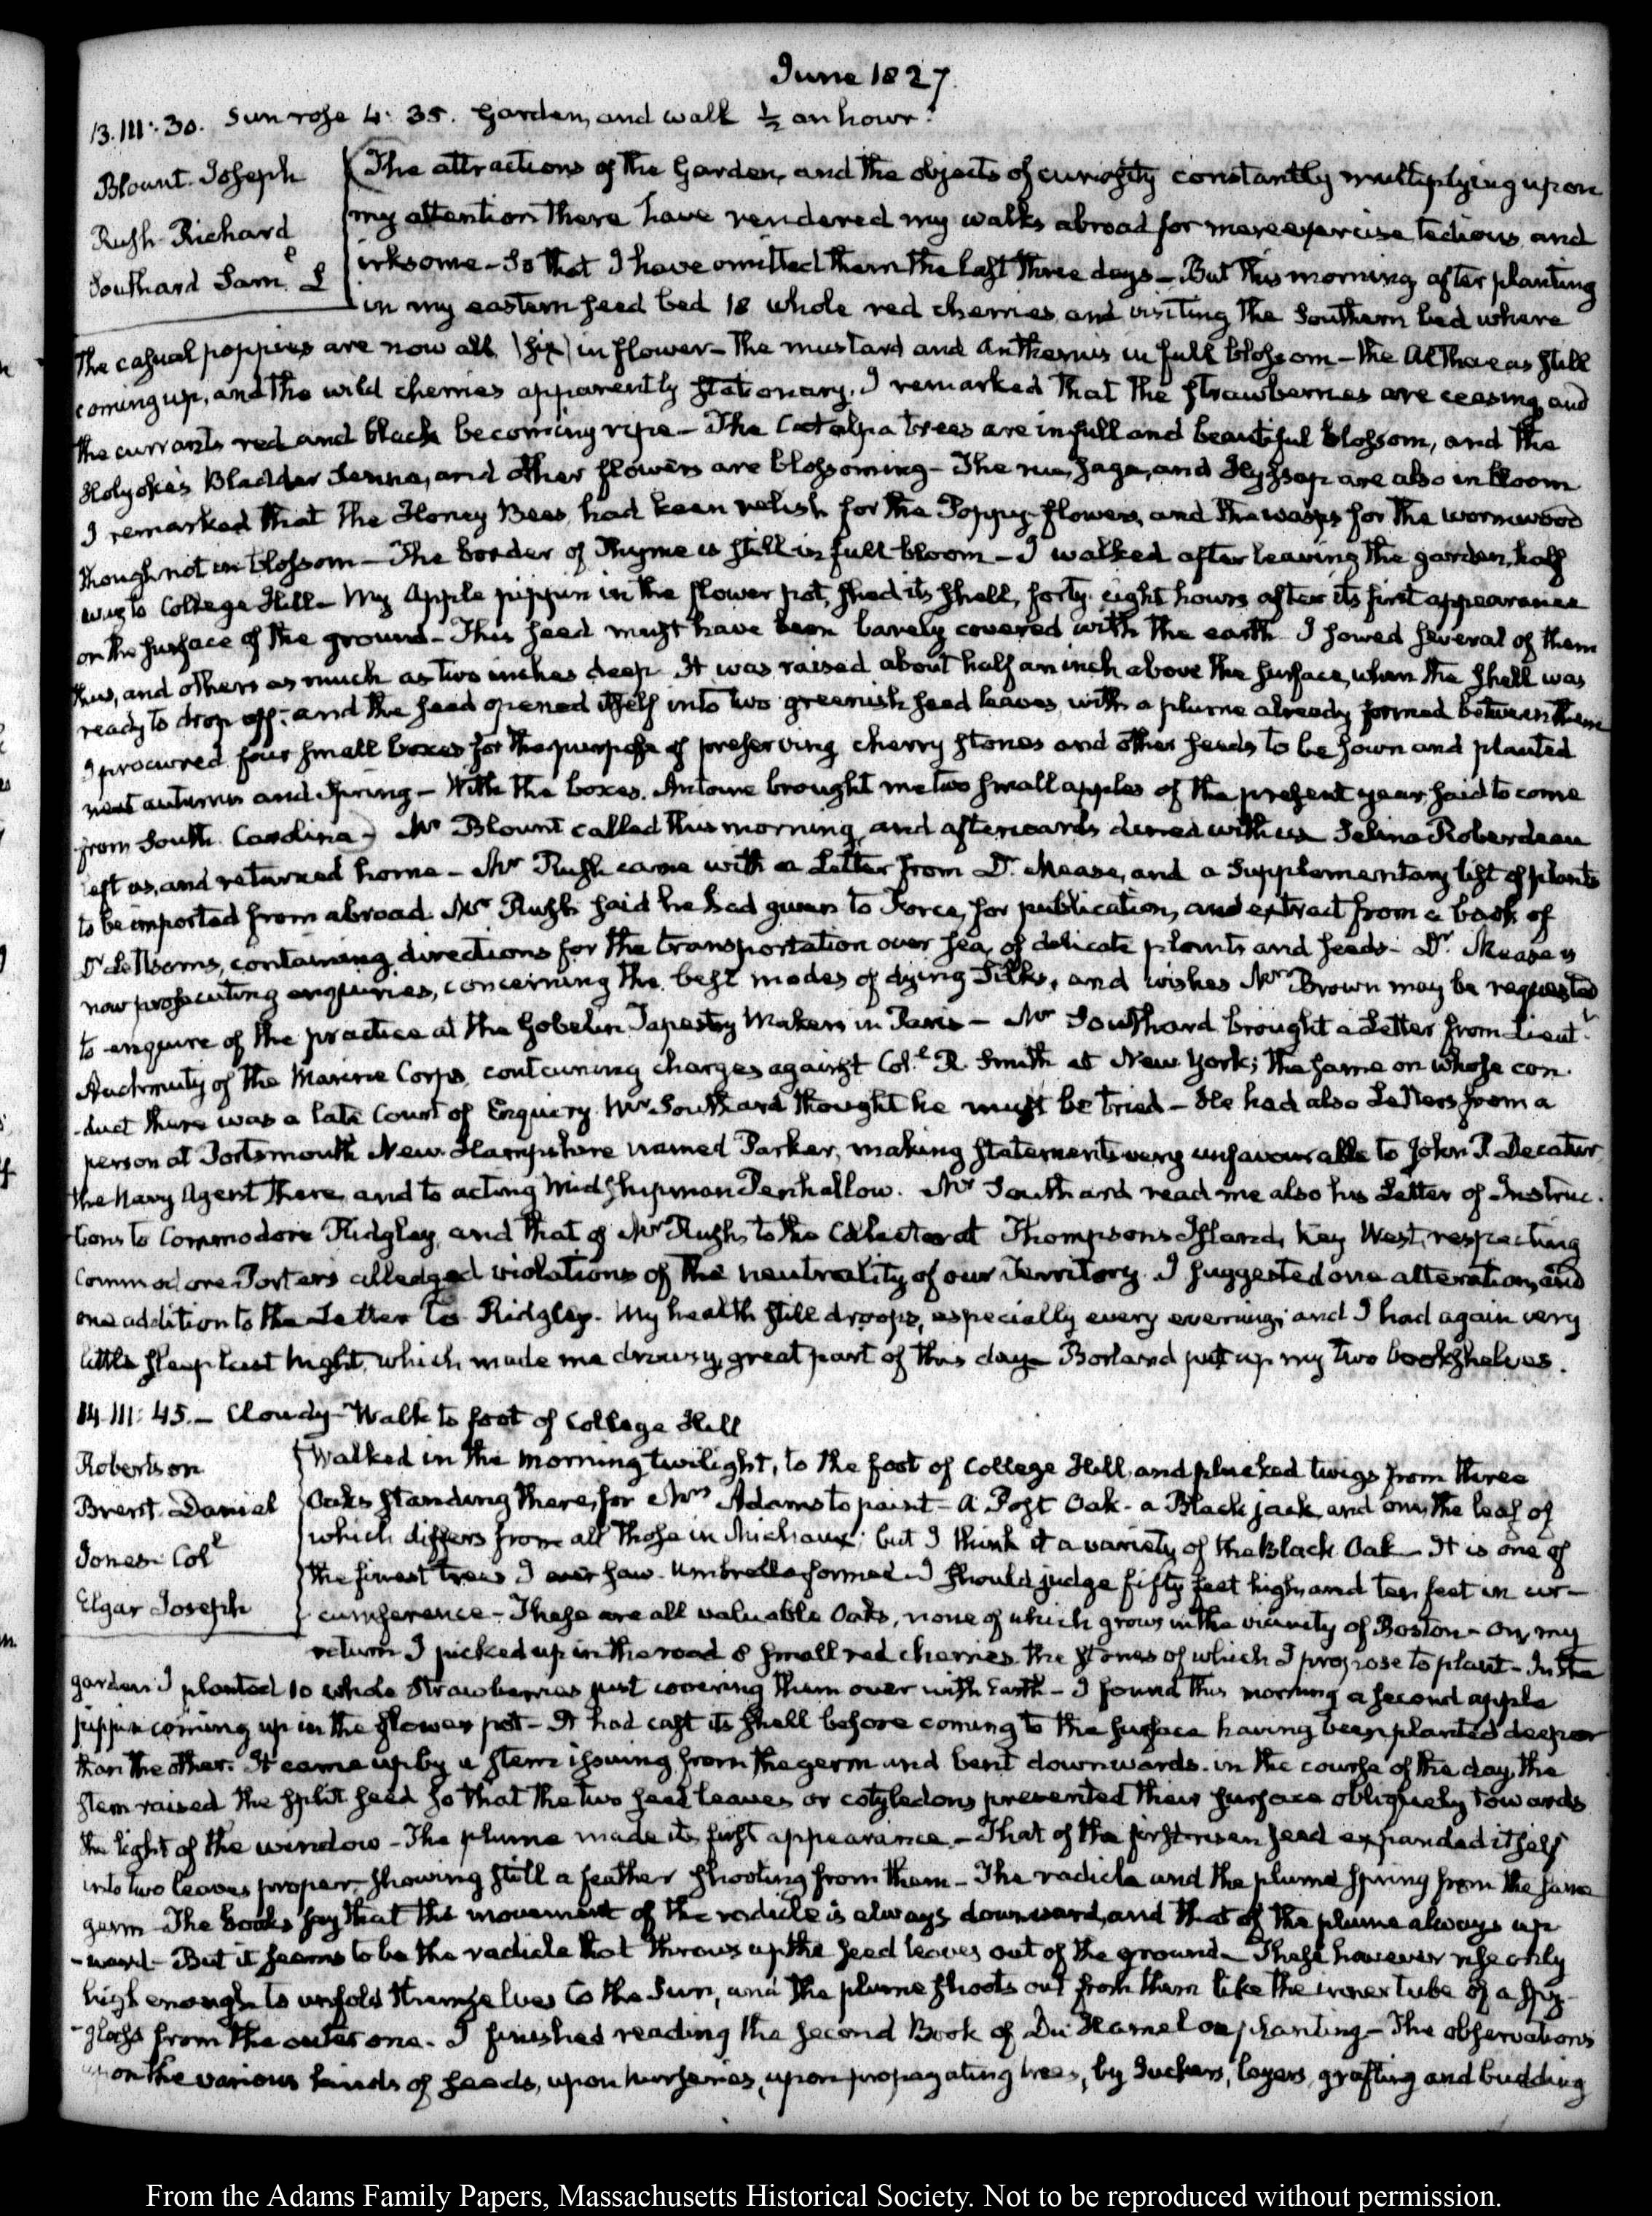 June 1827.
13. III:30. Sun rose 4:35. Garden, and walk ½ an hour.
Blount. Joseph
Rush Richard
Southard Sam.l L
The attractions of the Garden, and the objects of curiosity constantly multiplying upon
my attention there have rendered my walks abroad for mere exercise tedious, and
irksome – So that I have omitted them the last three days – But this morning after planting
in my eastern seed bed 18 whole red cherries, and visiting the Southern bed where
the casual poppies are now all (six) in flower – the mustard and Anthemis in full blossom – the Altheas still
coming up, and the wild cherries apparently stationary. I remarked that the strawberries are ceasing and
the currants red and black becoming ripe – The Catalpa trees are in full and beautiful blossom, and the
Holyokes Bladder Senna, and other flowers are blossoming – The rue, sage, and Hyssop are also in bloom
I remarked that the Honey Bees, had keen relish for the Poppy-flowers, and the wasps for the wormwood
though not in blossom – The border of Thyme is still in full bloom – I walked after leaving the garden, half
way to College Hill – My Apple pippin in the flower pot, shed its shell, forty-eight hours after its first appearance
on the surface of the ground – This seed must have been barely covered with the earth. I sowed several of them
thus, and others as much as two inches deep. It was raised about half an inch above the surface, when the shell was
ready to drop off; and the seed opened itself into two greenish seed leaves, with a plume already formed between them
I procured four small boxes for the purpose of preserving cherry stones and other seeds to be sown and planted
next autumn and Spring – With the boxes, Antoine brought me two small apples of the present year, said to come
from South Carolina) Mr Blount called this morning, and afterwards dined with us. Selina Roberdeau
left us, and returned home – Mr Rush came with a Letter from Dr. Mease, and a Supplementary list of plants
to be imported from abroad. Mr Rush said he had given to Force, for publication, and extract from a book of
Dr Lettsoms, containing directions for the transportation over sea, of delicate plants and seeds – Dr. Mease is
now prosecuting enquiries, concerning the best modes of dying Silks, and wishes Mr Brown may be requested
to enquire of the practice at the Gobelin Tapestry Makers in Paris – Mr Southard brought a Letter from Lieut.t
Auchmuty of the Marine Corps, containing charges against Col.l R. Smith at New York; the same on whose con-
-duct there was a late Court of Enquiry. Mr Southard thought he must be tried – He had also Letters from a
person at Portsmouth New-Hampshire named Parker, making statements very unfavourable to John P. Decatur,
the Navy Agent there, and to acting Midshipman Penhallow. Mr Southard read me also his Letter of Instruc-
-tions to Commodore Ridgley, and that of Mr Rush, to the Collector at Thompsons Island, Key West, respecting
Commodore Porter's alledged violations of the neutrality of our Territory. I suggested one alteration, and
one addition to the Letter to Ridgley. My health still droops, especially every evening; and I had again very
little sleep last night, which made me drowsy, great part of this day – Borland put up my two bookshelves.
14. III:45. – Cloudy – Walk to foot of College Hill
Robertson
Brent. Daniel
Jones. Col.l
Elgar Joseph
Walked in the morning twilight, to the foot of College Hill, and plucked twigs from three
Oaks standing there, for Mrs Adams to paint – a Post Oak – a Black jack, and one, the leaf of
which differs from all those in Michaux; but I think it a variety of the Black Oak – It is one of
the finest trees I ever saw. Umbrella formed – I should judge fifty feet high, and ten feet in cir-
-cumference – These are all valuable Oaks, none of which grows in the vicinity of Boston – On my
return I picked up in the road 8 small red cherries, the stones of which I propose to plant – In the
garden I planted 10 whole Strawberries just covering them over with Earth – I found this morning a second apple
pippin coming up in the flower pot – It had cast its shell before coming to the surface having been planted deeper
than the other. It came up by a stem issuing from the germ and bent downwards. in the course of the day, the
stem raised the split seed so that the two seed leaves or cotyledons presented their surface obliquely towards
the light of the window – The plume made its first appearance – That of the first risen seed expanded itself
into two leaves proper, showing still a feather shooting from them – The radicle and the plume spring from the same
germ – The books say that the movement of the radicle is always downward, and that of the plume always up-
-ward – But it seems to be the radicle that throws up the seed leaves out of the ground – These however rise only
high enough to unfold themselves to the Sun, and the plume shoots out from them like the inner tube of a spy-
-glass from the outer one. I finished reading the second Book of Du Hamel on planting – The observations
upon the various kinds of seeds, upon nurseries, upon propagating trees, by Suckers, layers, grafting and budding
From the Adams Family Papers, Massachusetts Historical Society. Not to be reproduced without permission.